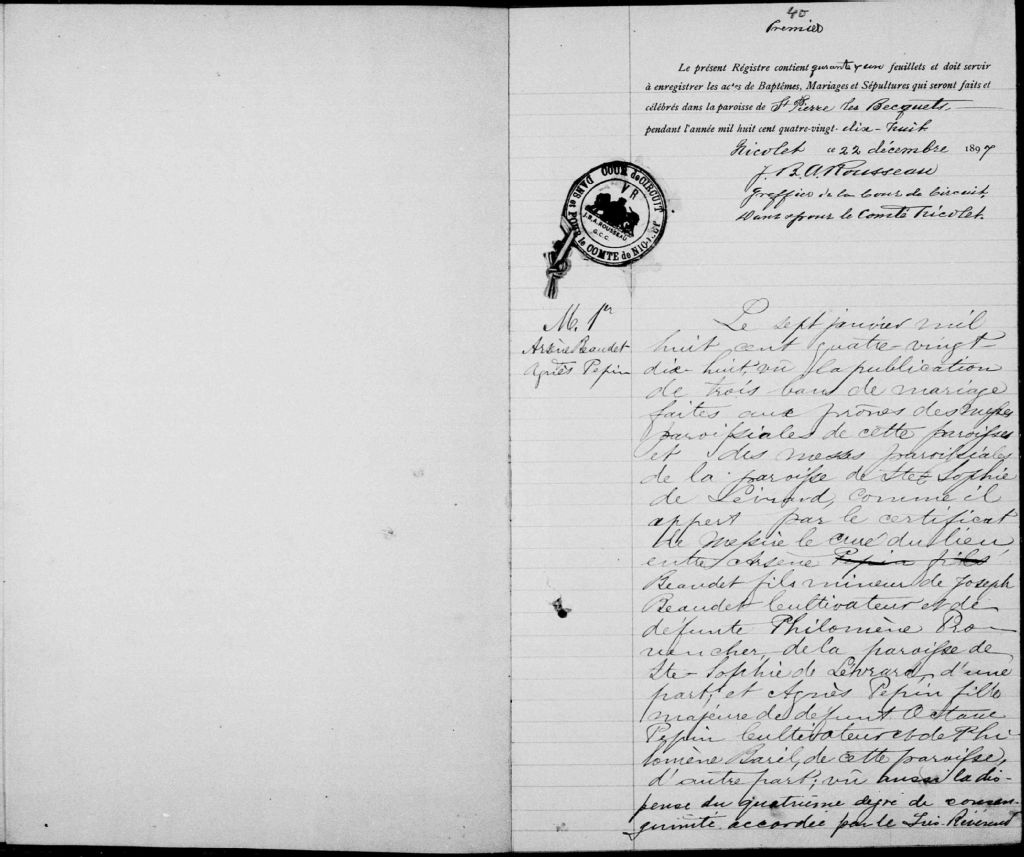 40
Premier
Le présent Régistre contient quarante & un feuillets et doit servir
à enregistrer les actes de Baptêmes, Mariages et Sépultures qui seront faits et
célébrés dans la paroisse de St Pierre les Becquets
pendant l'année mil huit cent quatre-vingt-dix-huit
Nicolet ce 22 décembre 1897
J. B. A. Rousseau
Greffier de la Cour de Circuit,
Dans & pour le Comté Nicolet.
COUR de CIRCUIT
DANS et POUR le COMTE de NICOLET
VR
J.B.A. ROUSSEAU
G.C.C.
M. 1er
Arsène Beaudet
Agnès Pepin
Le sept janvier mil
huit cent quatre-vingt-
dix-huit, vû la publication
de trois bans de mariage
faites aux prônes des messes
paroissiales de cette paroisse
et des messes paroissiales
de la paroisse de Ste Sophie
de Lévrard, comme il
appert par le certificat
de Messire le curé du lieu
entre Arsène Pepin fils
Beaudet fils mineur de Joseph
Beaudet cultivateur et de
défunte Philomène Pro-
vencher, de la paroisse de
Ste-Sophie de Lévrard, d'une
part; et Agnès Pepin fille
majeure de defunt Octave
Pepin cultivateur et de Phi-
lomène Baril, de cette paroisse,
d'autre part; vû aussi la dis-
pense du quatrième degré de consan-
guinité accordée par le Très-Révérend